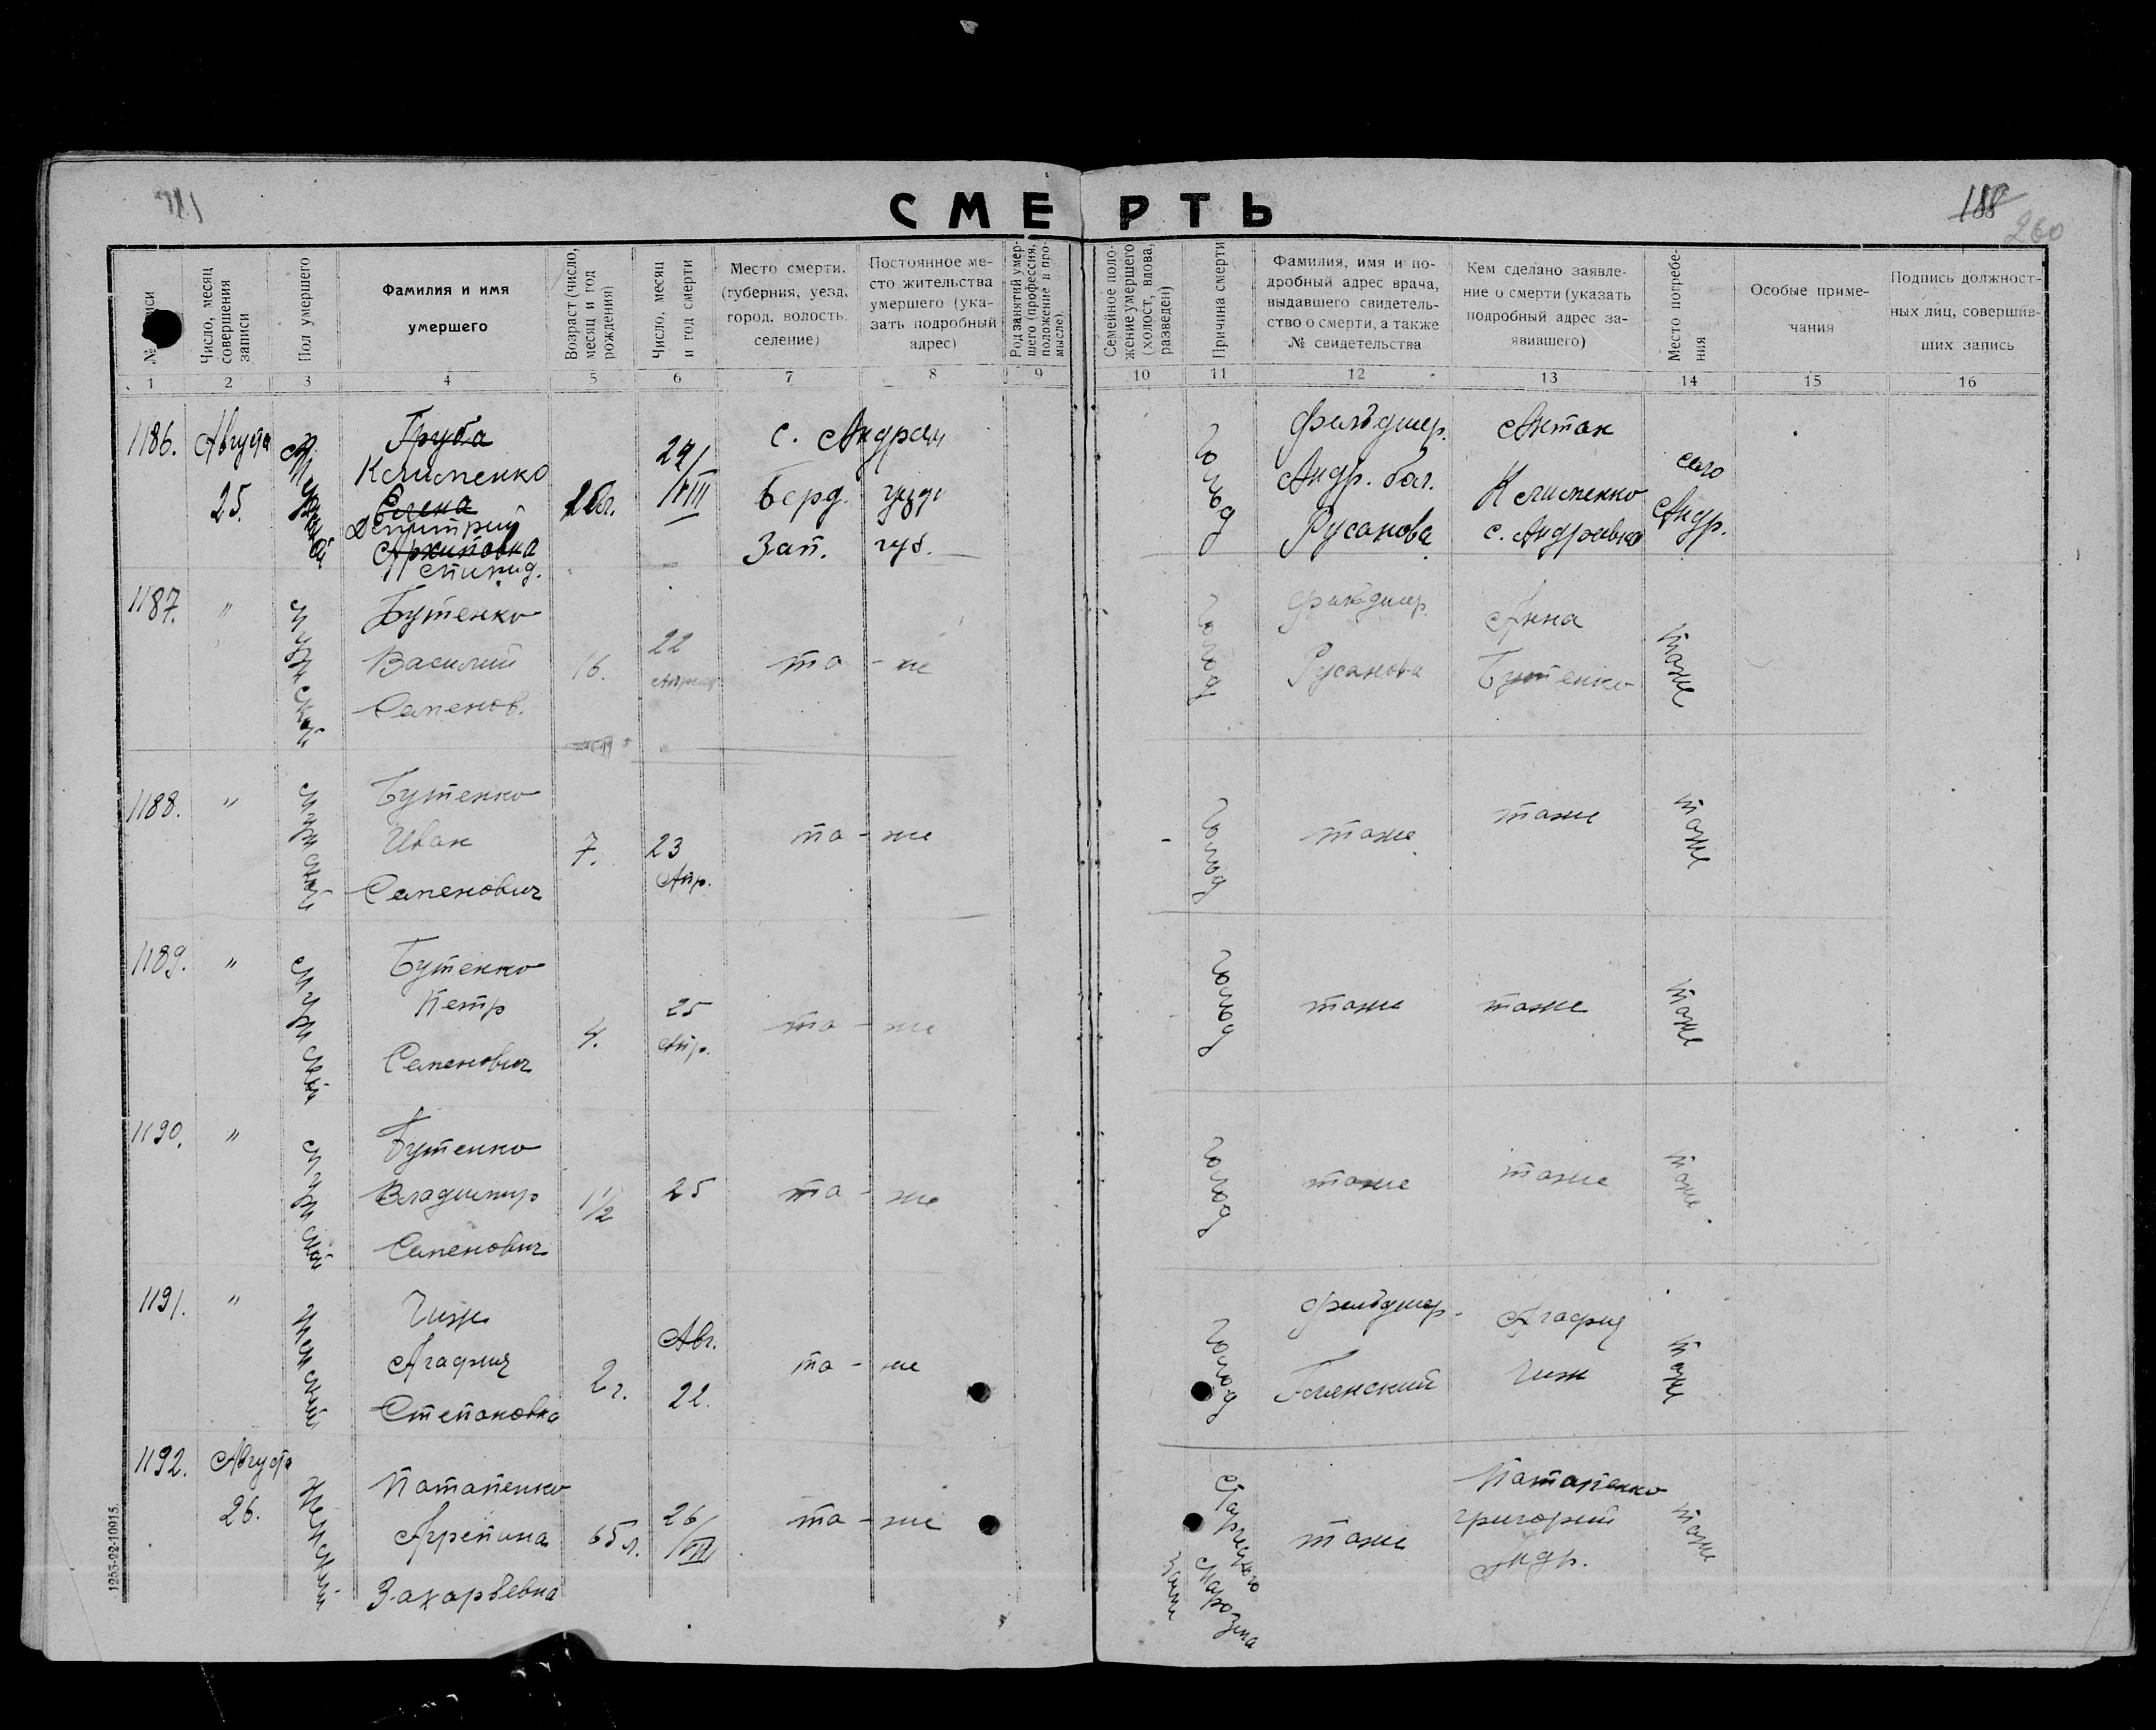 СМЕРТЬ
188
260
№ ...иси
Число, месяц совершения записи
Пол умершего
Фамилия и имя
умершего
Возраст (число, месяц и год рождения)
Число, месяц и год смерти
Место смерти.
(губерния, уезд,
город, волость,
селение)
Постоянное ме-
сто жительства
умершего (ука-
зать подробный
адрес)
Род занятий умер-
шего (профессия,
положение в про-
мысле).
Семейное поло-
жение умершего
(холост, вдова,
разведен)
Причина смерти
Фамилия, имя и по-
дробный адрес врача,
выдавшего свидетель-
ство о смерти, а также
№ свидетельства
Кем сделано заявле-
ние о смерти (указать
подробный адрес за-
явившего)
Место погребе-
ния
Особые приме-
чания
Подпись должност-
ных лиц, совершив-
ших запись
1 2 3 4 5 6 7 8 9 10 11 12 13 14 15 16
1186.
Августа
25.
Мужской
Груба
Клименко
Елена
Дмитрий
Архиповна
Спирид.
26л.
24/VIII
с. Андреев
Берд. уезда
Зап. губ.
Голод
Фельдшер.
Андр. бол.
Русанова
Антон
Клименко
с. Андреевка
село
Андр.
1187.
"
Мужской
Бутенко
Василий
Семенов.
16.
22
Апреля
то - же
Голод
Фельдшер.
Русанова
Анна
Бутенко
тоже
1188.
"
Мужской
Бутенко
Иван
Семенович
7.
23
Апр.
то - же
Голод
тоже
тоже
тоже
1189.
"
Мужской
Бутенко
Петр
Семенович
4.
25
Апр.
то - же
Голод
тоже
тоже
тоже
1190.
"
Мужской
Бутенко
Владимир
Семенович
1 1/2
25
то - же
Голод
тоже
тоже
тоже.
1191.
"
Женский
Чиж
Агафия
Степановна
2 г.
Авг.
22.
то - же
Голод
Фельдшер.
Глинский
Агафия
Чиж
тоже
1192.
Августа
26.
Женский
Потапенко
Агрепина
Захарьевна
65 л.
26/VIII
то - же
Старческого
тоже
Потапенко
Григорий
Андр.
тоже
1255-22-10015.